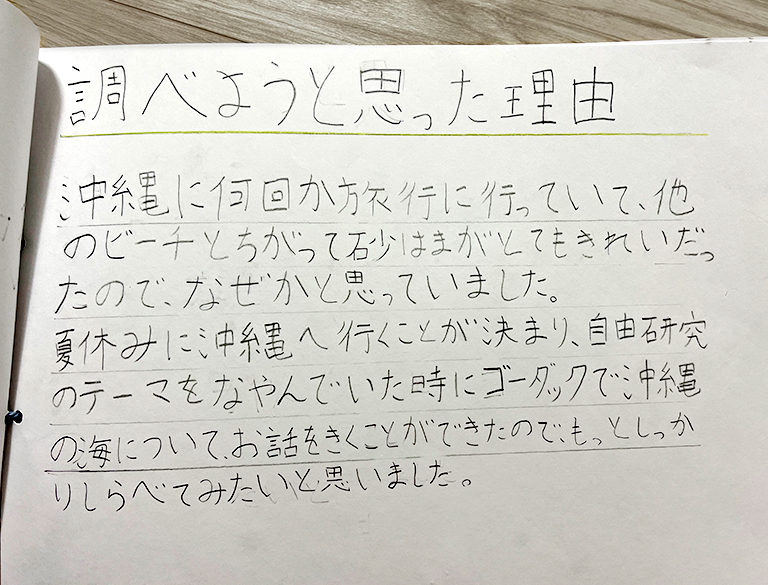 調べようと思った理由
沖縄に何回か旅行に行っていて、他
のビーチとちがって砂はまがとてもきれいだっ
たので、なぜかと思っていました。
夏休みに沖縄へ行くことが決まり、自由研究
のテーマをなやんでいた時にゴーダックで沖縄
の海について、お話をきくことができたので、もっとしっか
りしらべてみたいと思いました。